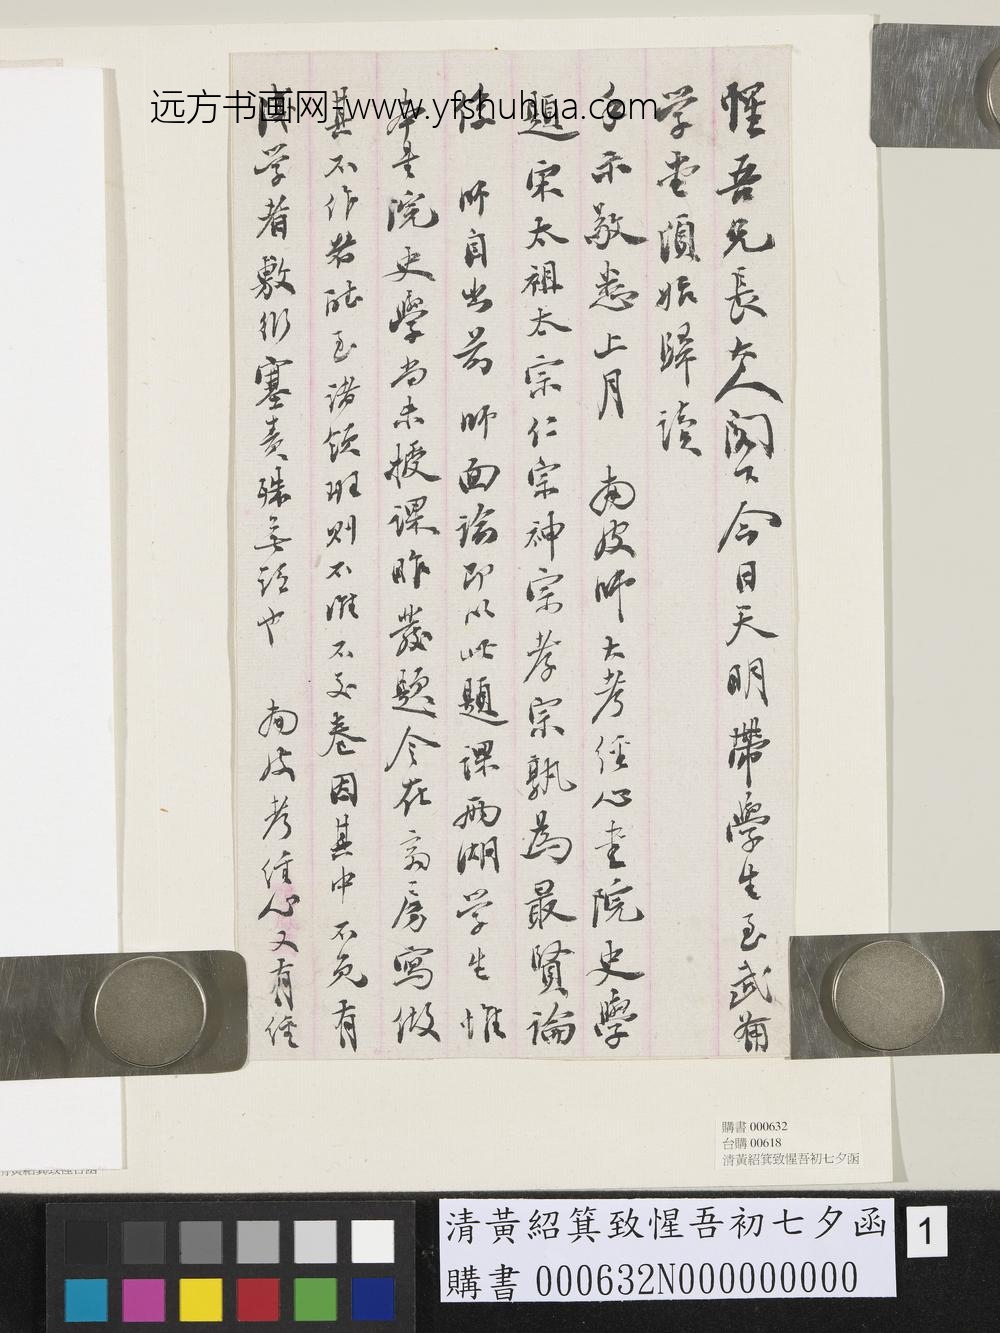 远方书画网-www.yfshuhua.com
惺吾兄長大人閣下今日天明帶學生至武備
学堂頃始歸读
手示敬悉上月 南皮师大考经心书院史學
題宋太祖太宗仁宗神宗孝宗孰為最賢論
师自出前 师面諭即以此題課兩湖学生惟
本是院史學尚未授課昨發題令在斋房寫做
其不作者能至诸领班则不准不交卷因其中不免有
浅学者敷衍塞责殊無谓也 南皮考经心又有经
購書 000632
台購 00618
清黃紹箕致惺吾初七夕函
清黃紹箕致惺吾初七夕函
購書 000632N000000000
1